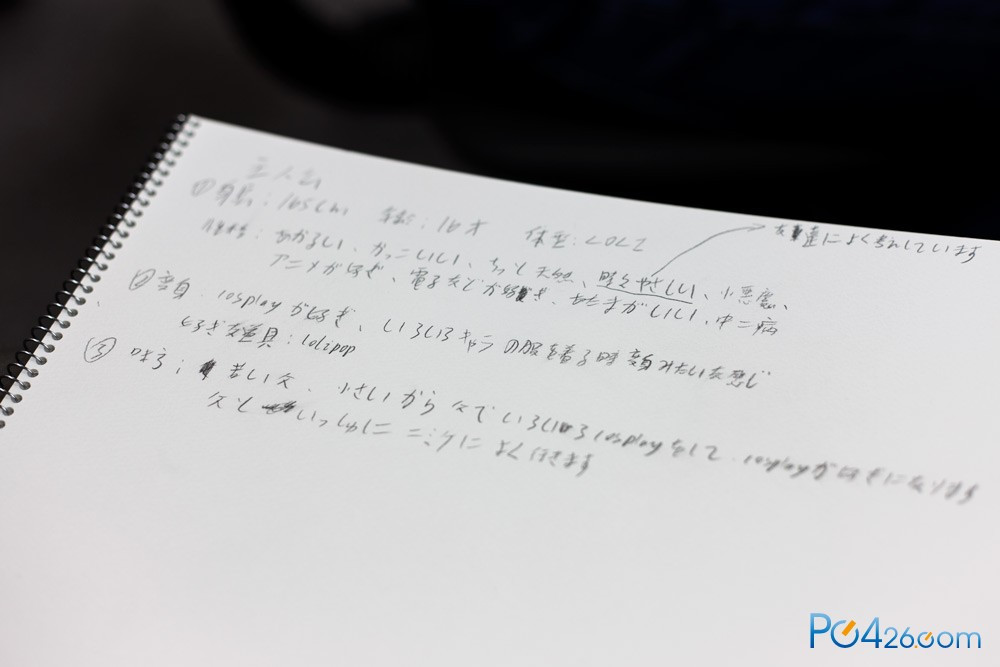 主人公
①身長：165cm 年齢：16才 体型：LOLI
友達によくしています
性格：あかるい、かっこいい、ちょっと天然、時々やさしい、小悪魔、
アニメが好き、電子などが好き、あたまがいい、中二病
②変身．cosplayが好き、いろいろキャラの服を着る時変身みたいな感じ
好き道具：lolipop
③味方；若い父、小さいから父でいろいろcosplayをして．cosplayが好きになります
父といっしょにコミケによく行きます
PC426.com